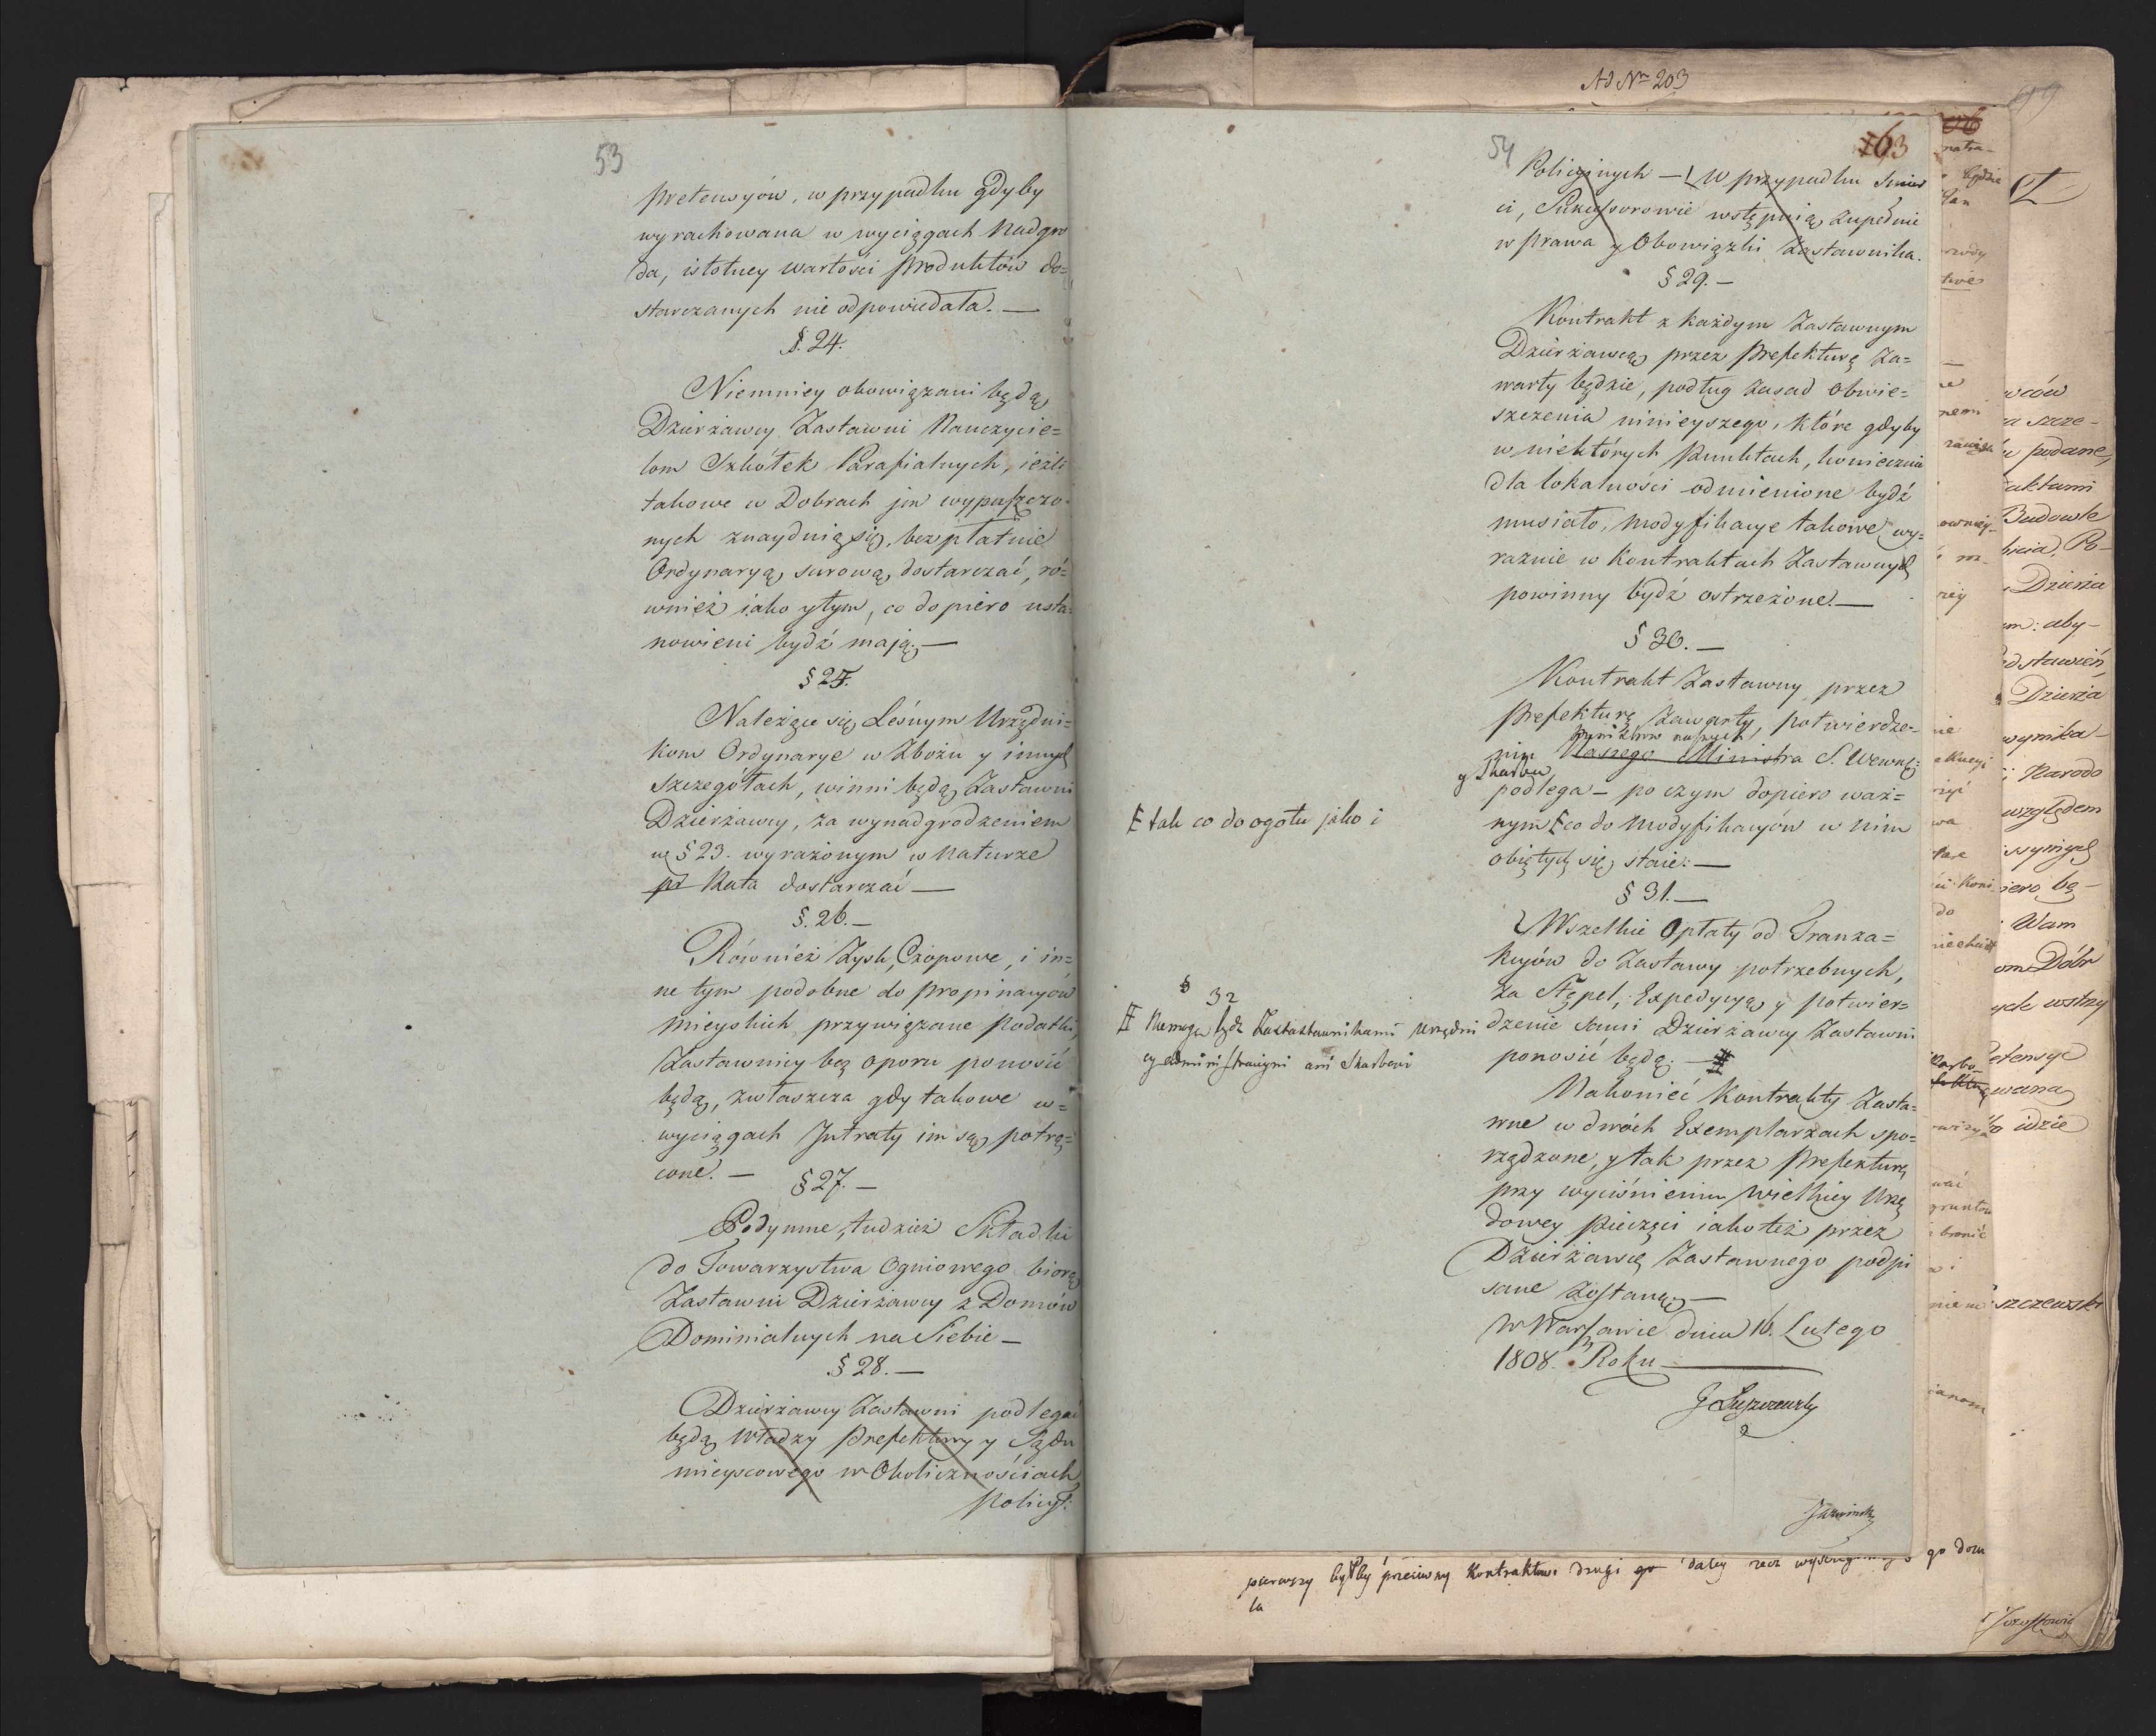 53
pretensyów, w przypadku gdyby
wyrachowana w wyciągach Nadgro
da, istotney wartości produktów do=
starczanych nie odpowiedała. —
§. 24.
Niemniey obowiązani będą
Dzierżawcy Zastawni Nauczycie=
lom Szkółek Parafialnych, ieżli
takowe w Dobrach jm wypuszczo-
nych znayduią się, bezpłatnie
Ordynaryą surową dostarczać, ró=
wnież iako y tym, co dopiero usta=
nowieni bydź mają. —
§ 25.
Należące się Leśnym Urzędni=
kom Ordynarye w Zbożu y innych
szczegółach, winni będą Zastawni
Dzierżawcy, za wynadgrodzeniem
w § 23. wyrażonym w naturze
pr Rata dostarczać —
§. 26. —
Również Zysk, Czopowe, i in=
ne tym podobne do propinacyów
mieyskich przywiązane podatki,
Zastawnicy bez oporu ponosić
będą, zwłaszcza gdy takowe w=
wyciągach Jntraty im są potrą=
cone. —
§ 27. —
Podymne, tudzież Składki
do Towarzystwa Ogniowego biorą
Zastawni Dzierżawcy z Domów
Dominialnych na Siebie —
§ 28. —
Dzierżawcy Zastawni podlegać
będą Władzy Prefektury y Sądu
mieyscowego w Okolicznościach
policyi:
Ad Nr 203
54
163
Policyinych — W przypadku Śmier
ci, Sukcessorowie wstępuią zupełnie
w prawa y Obowiązki Zastawnika.
§ 29. —
Kontrakt z każdym Zastawnym
Dzierżawcą przez Prefekturę Za=
warty będzie, podług Zasad Obwie=
szczenia ninieyszego, które gdyby
w niektórych punktach, koniecznie
dla lokalności odmienione bydź
musiało, modyfikacye takowe wy=
raznie w Kontraktach Zastawnych
powinny bydź ostrzeżone. —
§ 30. —
Kontrakt Zastawny przez
Prefekturę zawarty, potwierdze-
niu Naszego Ministra S. Wewnę:
Ministrów naszych
y Skarbu
podlega — po czym dopiero waż=
nym co do modyfikacyów w nim
obiętych się staie: —
tak co do ogołu jako i
§ 31. —
Wszelkie Opłaty od Tranza=
kcyów do Zastawy potrzebnych,
za Stępel, Expedycyą y potwier=
dzenie sami Dzierżawcy Zastawni
ponosić będą. —
§ 32
Niemogą bydź Zastastawnikami Urzędni
cy administracyini ani Skarbowi
Nakoniec Kontrakty Zasta=
wne w dwóch Exemplarzach spo=
rządzone, y tak przez Prefekturę
przy wyciśnieniu wielkiey Urzę
dowey pieczęci iakoteż przez
Dzierżawcę Zastawnego podpi
sane zostaną —
W Warszawie dnia 16. Lutego
1808. Roku
J Łuszczewsky
pierwszy byłby przeciwny Kontraktowi drugi go dałby
la